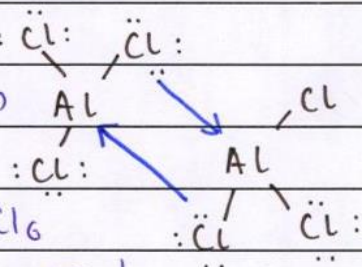 :Cl: Cl:
Al Cl
:Cl: Al
Cl6 :Cl Cl: